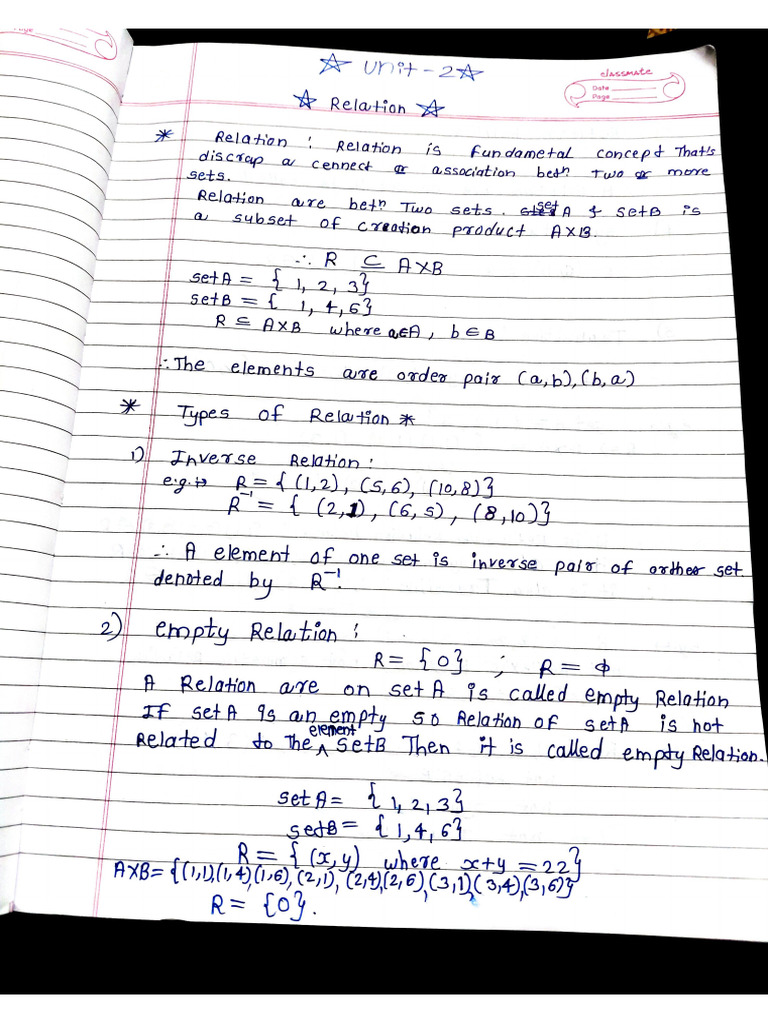 ☆ Unit - 2 ☆
classmate
Date
Page
☆ Relation ☆
* Relation : Relation is fundametal concept That's
discrap a cennect or association betn Two or more
sets.
Relation are betn Two sets. set A & set B is
a subset of creation product A×B.
∴ R ⊆ A×B
set A = { 1, 2, 3}
set B = { 1, 4, 6}
R ⊆ A×B where a∈A, b∈B
∴ The elements are order pair (a,b),(b,a)
* Types of Relation *
1) Inverse Relation :
e.g.:→ R = { (1,2), (5,6), (10,8)}
R⁻¹ = { (2,1), (6,5), (8,10)}
∴ A element of one set is inverse pair of orther set.
denoted by R⁻¹.
2) empty Relation :
R = {0} ; R = ϕ
A Relation are on set A is called empty Relation
If set A is an empty so Relation of set A is not
Related to The element set B Then it is called empty Relation.
set A = {1, 2, 3}
set B = {1, 4, 6}
R = { (x,y) where x+y = 22}
A×B = {(1,1),(1,4),(1,6),(2,1),(2,4),(2,6),(3,1),(3,4),(3,6)}
R = {0}.